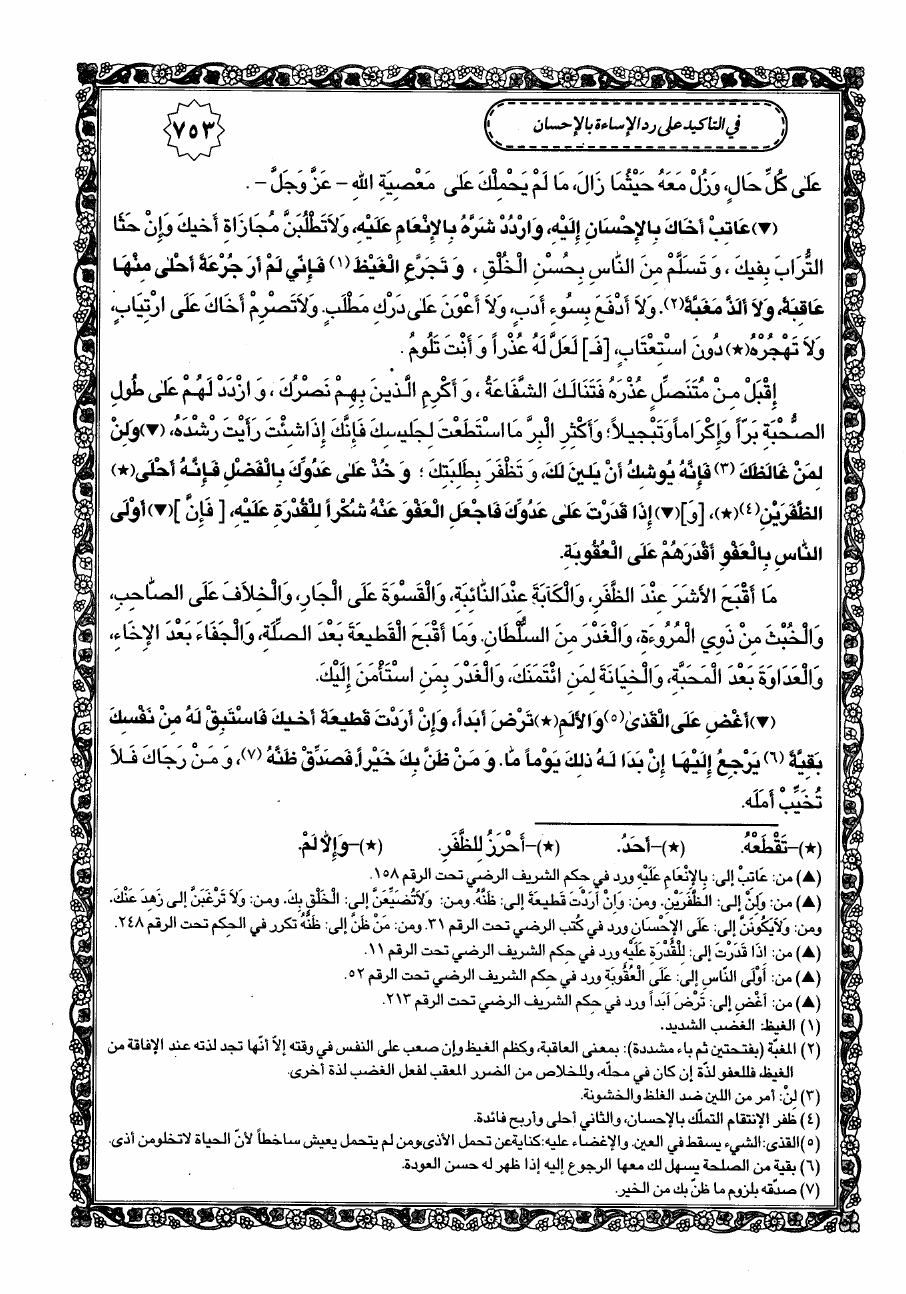 في التاكيد على رد الإساءة بالإحسان
٧٥٣
عَلىٰ كُلِّ حَالٍ، وَزُلْ مَعَهُ حَيْثُمَا زَالَ، مَا لَمْ يَحْمِلْكَ عَلىٰ مَعْصِيَةِ اللهِ - عَزَّ وَجَلَّ - .
(▼)عَاتِبْ أَخَاكَ بِالإِحْسَانِ إِلَيْهِ، وَارْدُدْ شَرَّهُ بِالإِنْعَامِ عَلَيْهِ، وَلاَتَطْلُبَنَّ مُجَازَاةَ أَخيكَ وَإِنْ حَثَا
التُّرَابَ بِفيكَ ، وَ تَسَلَّمْ مِنَ النَّاسِ بِحُسْنِ الْخُلْقِ ، وَ تَجَرَّعِ الْغَيْظَ (١) فَإِنّي لَمْ أَرَ جُرْعَةً أَحْلىٰ مِنْهَا
عَاقِبَةً، وَلاَ أَلَذَّ مَغَبَّةً(٢). وَلاَ أَدْفَعَ بِسُوءِ أَدَبٍ، وَلاَ أَعْوَنَ عَلىٰ دَرَكِ مَطْلَبٍ. وَلاَتَصْرِمْ أَخَاكَ عَلَى ارْتِيَابٍ،
وَلاَ تَهْجُرْهُ(★) دُونَ اسْتِعْتَابٍ، [فَـ] لَعَلَّ لَهُ عُذْراً وَ أَنْتَ تَلُومُ .
إِقْبَلْ مِنْ مُتَنَصِّلٍ عُذْرَهُ فَتَنَالَكَ الشَّفَاعَةُ ، وَ أَكْرِمِ الَّذينَ بِهِمْ نَصْرُكَ ، وَ ازْدَدْ لَهُمْ عَلىٰ طُولِ
الصُّحْبَةِ بَرّاً وَإِكْرَاماً وَتَبْجيلاً؛ وَأَكْثِرِ الْبِرَّ مَا اسْتَطَعْتَ لِجَليسِكَ فَإِنَّكَ إِذَا شِئْتَ رَأَيْتَ رُشْدَهُ، (▼)وَلِنْ
لِمَنْ غَالَظَكَ (٣) فَإِنَّهُ يُوشِكُ أَنْ يَلينَ لَكَ، وَ تَظْفَرَ بِطَلِبَتِكَ ؛ وَ خُذْ عَلىٰ عَدُوِّكَ بِالْفَضْلِ فَإِنَّهُ أَحْلَى(★)
الظَّفَرَيْنِ(٤)(★)، [وَ](▼)إِذَا قَدَرْتَ عَلىٰ عَدُوِّكَ فَاجْعَلِ الْعَفْوَ عَنْهُ شُكْراً لِلْقُدْرَةِ عَلَيْهِ، [ فَإِنَّ ](▼)أَوْلَى
النَّاسِ بِالْعَفْوِ أَقْدَرُهُمْ عَلَى الْعُقُوبَةِ.
مَا أَقْبَحَ الأَشَرَ عِنْدَ الظَّفَرِ، وَالْكَآبَةَ عِنْدَ النَّائِبَةِ، وَالْقَسْوَةَ عَلَى الْجَارِ، وَالْخِلاَفَ عَلَى الصَّاحِبِ،
وَالْخُبْثَ مِنْ ذَوِي الْمُرُوءَةِ، وَالْغَدْرَ مِنَ السُّلْطَانِ. وَمَا أَقْبَحَ الْقَطيعَةَ بَعْدَ الصِّلَةِ، وَالْجَفَاءَ بَعْدَ الإِخَاءِ،
وَالْعَدَاوَةَ بَعْدَ الْمَحَبَّةِ، وَالْخِيَانَةَ لِمَنِ ائْتَمَنَكَ، وَالْغَدْرَ بِمَنِ اسْتَأْمَنَ إِلَيْكَ.
(▼)أَغْضِ عَلَى الْقَذىٰ(٥) وَالأَلَمِ(★)تَرْضَ أَبَداً، وَإِنْ أَرَدْتَ قَطيعَةَ أَخيكَ فَاسْتَبِقْ لَهُ مِنْ نَفْسِكَ
بَقِيَّةً (٦) يَرْجِعُ إِلَيْهَا إِنْ بَدَا لَهُ ذلِكَ يَوْماً مَا. وَ مَنْ ظَنَّ بِكَ خَيْراً فَصَدِّقْ ظَنَّهُ (٧)، وَ مَنْ رَجَاكَ فَلاَ
تُخَيِّبْ أَمَلَه.
(★)-تَقْطَعْهُ. (★)-أَحَدُ. (★)-أَحْرَزُ لِلظَّفَرِ. (★)-وَإِلاَّ لَمْ.
(▲) من: عَاتِبْ إلى: بِالإِنْعَامِ عَلَيْهِ ورد في حكم الشريف الرضي تحت الرقم ١٥٨.
(▲) من: وَلِنْ إلى: الظَّفَرَيْنِ. ومن: وَإِنْ أَرَدْتَ قَطيعَةَ إلى: ظَنَّهُ. ومن: وَلاَتُضَيِّعَنَّ إلى: الْخَلْقِ بِكَ. ومن: وَلاَ تَرْغَبَنَّ إلى زَهِدَ عَنْكَ.
ومن: وَلاَيَكُونَنَّ إلى: عَلَى الإِحْسَانِ ورد في كُتب الرضي تحت الرقم ٣١. ومن: مَنْ ظَنَّ إلى: ظَنَّهُ تكرر في الحِكم تحت الرقم ٢٤٨.
(▲) من: اذَا قَدَرْتَ إلى: لِلْقُدْرَةِ عَلَيْهِ ورد في حكم الشريف الرضي تحت الرقم ١١.
(▲) من: أَوْلَى النَّاسِ إلى: عَلَى الْعُقُوبَةِ ورد في حكم الشريف الرضي تحت الرقم ٥٢.
(▲) من: أَغْضِ إلى: تَرْضَ أَبَداً ورد في حكم الشريف الرضي تحت الرقم ٢١٣.
(١) الغيظ: الغضب الشديد.
(٢) المغبّة (بفتحتين ثم باء مشددة): بمعنى العاقبة، وكظم الغيظ وإن صعب على النفس في وقته إلاّ أنّها تجد لذته عند الإفاقة من
الغيظ، فللعفو لذّة إن كان في محلّه، وللخلاص من الضرر المعقب لفعل الغضب لذة أخرى.
(٣) لِنْ: أمر من اللين ضد الغلظ والخشونة.
(٤) ظفر الإنتقام التملّك بالإحسان، والثاني أحلى وأربح فائدة.
(٥) القذى: الشيء يسقط في العين. والإغضاء عليه: كناية عن تحمل الأذى، ومن لم يتحمل يعيش ساخطاً لأنّ الحياة لاتخلو من أذى.
(٦) بقية من الصلحة يسهل لك معها الرجوع إليه إذا ظهر له حسن العودة.
(٧) صدّقه بلزوم ما ظنّ بك من الخير.